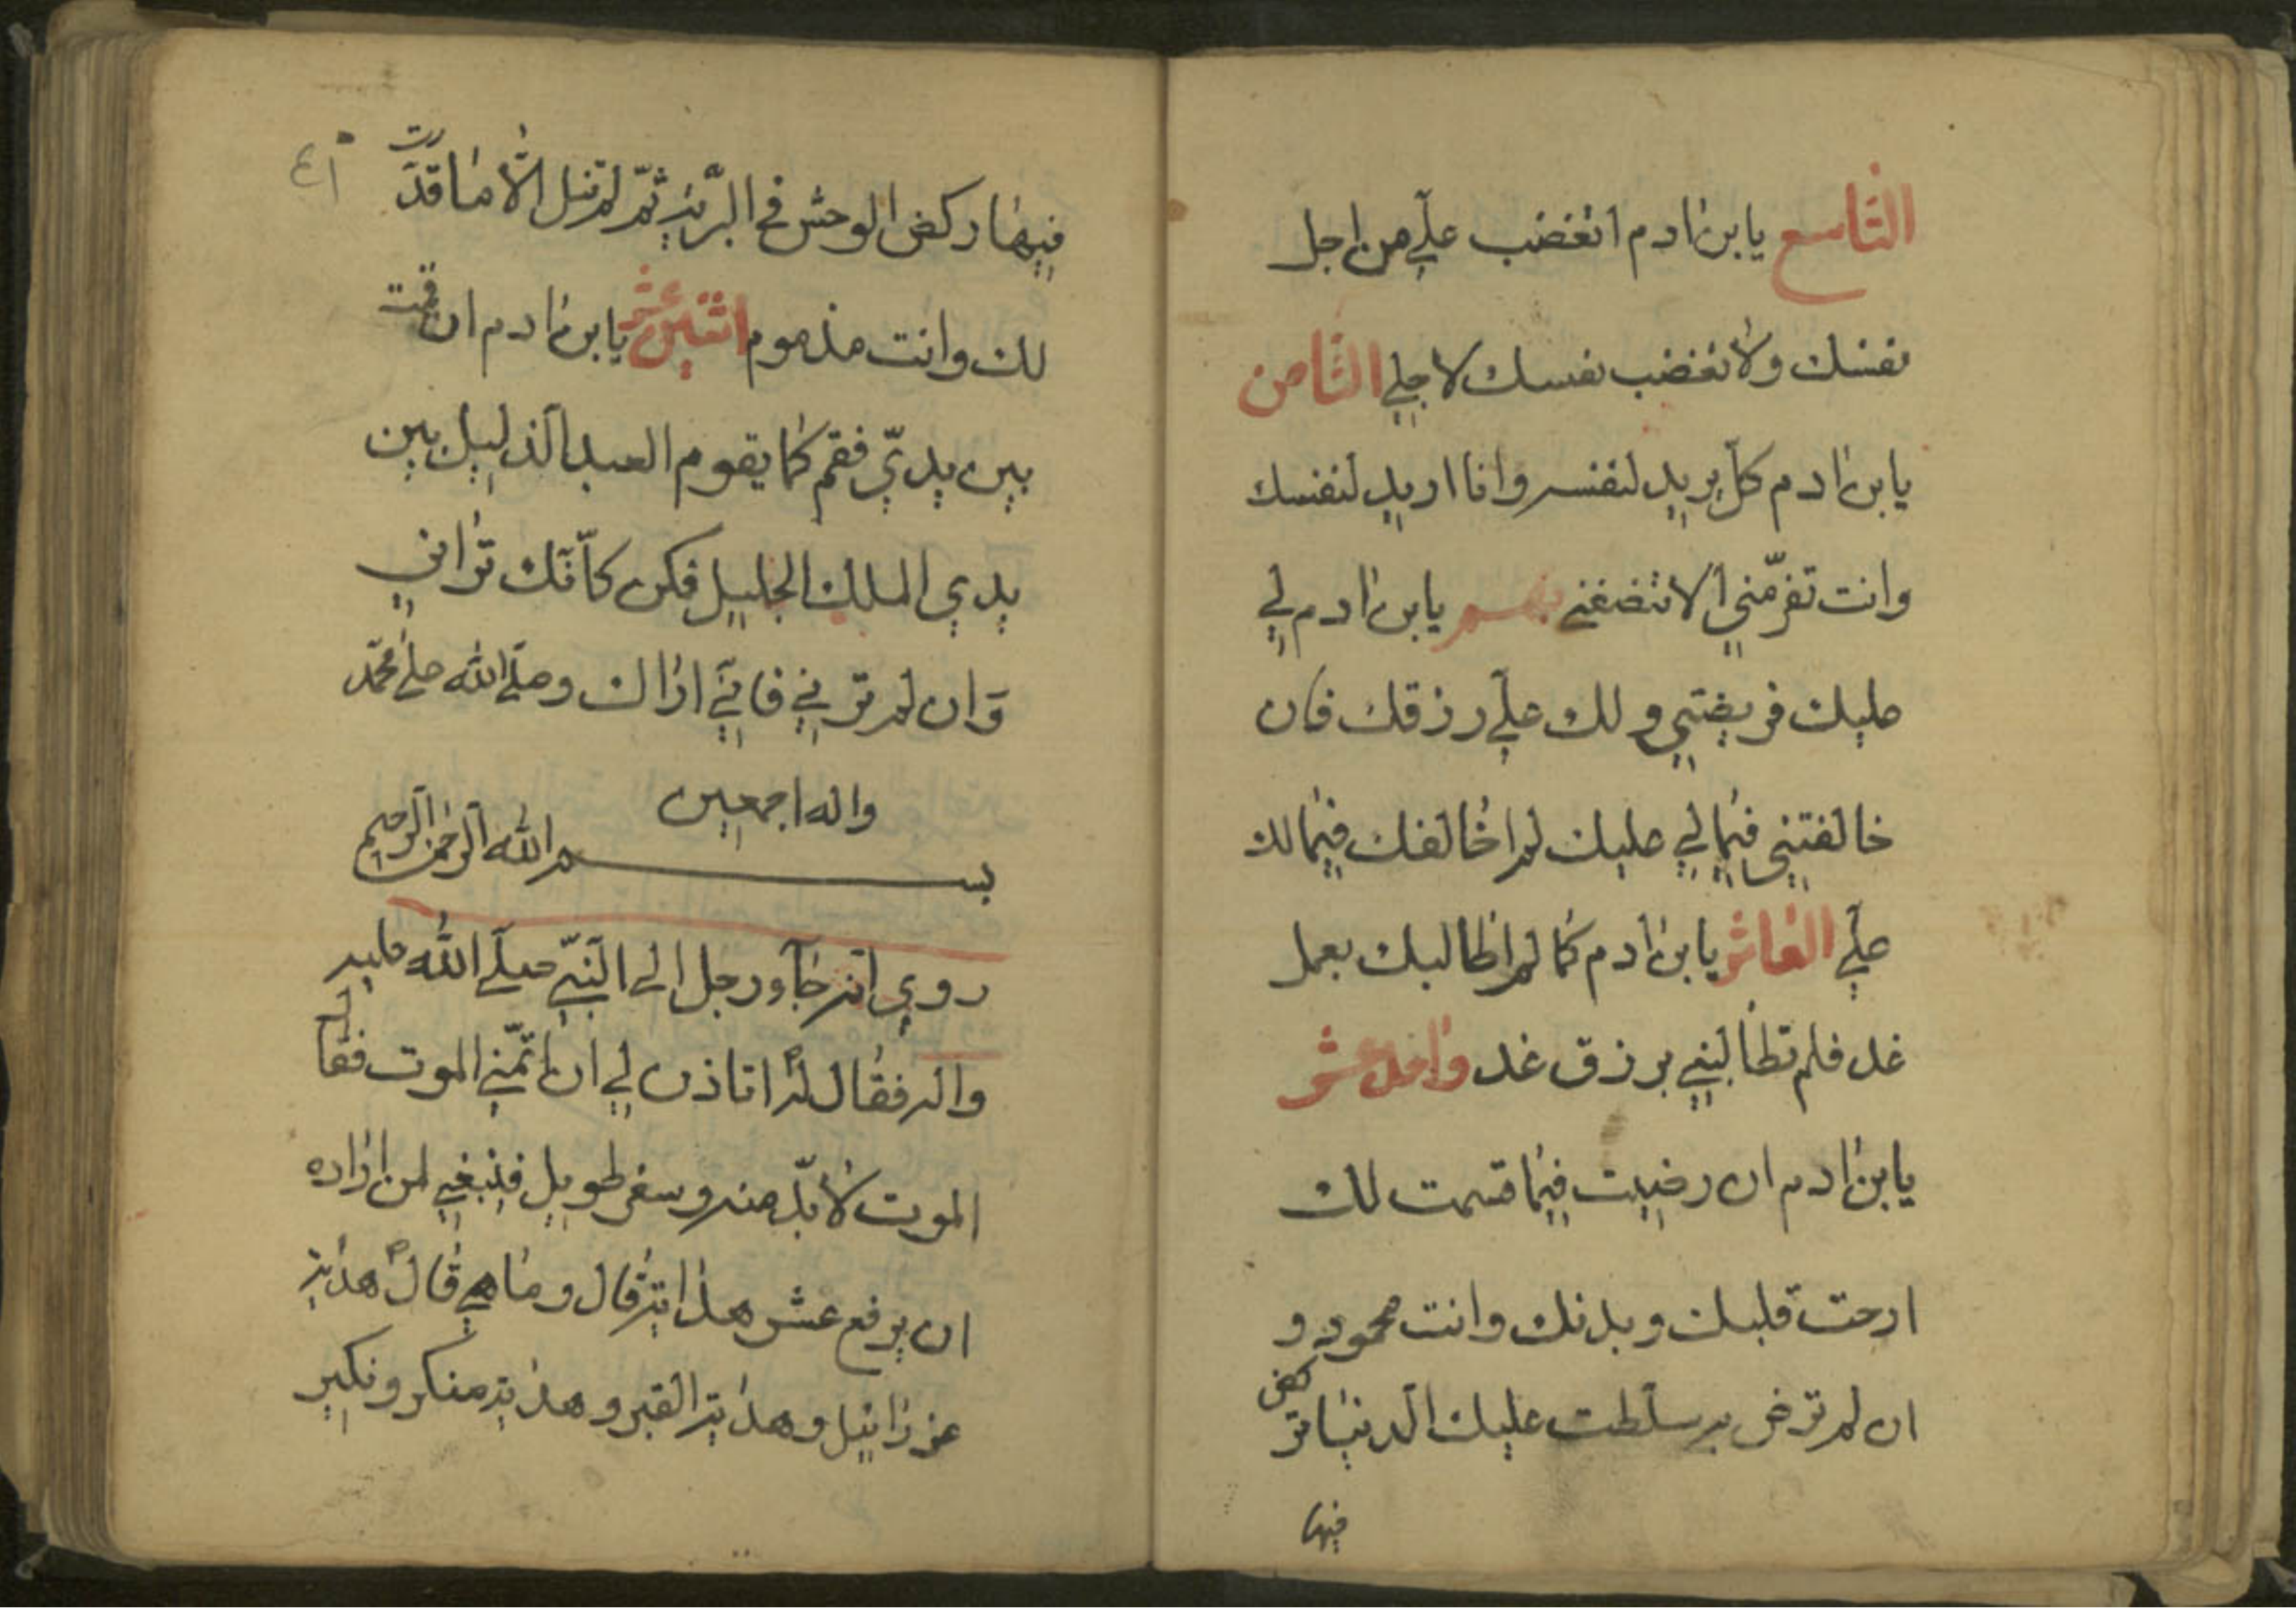 التاسع يابن ادم اتغضب علي من اجل
نفسك ولا تغضب نفسك لاجلي الثامن
يابن ادم كل يريد لنفسه وانا اريد لنفسك
وانت تفر مني الا تنصفني يابن ادم لي
عليك فريضتي ولك علي رزقك فان
خالفتني فيما لي عليك لم اخالفك فيما لك
علي العاشر يابن ادم كما لم اطالبك بعمل
غد فلم تطالبني برزق غد واحد عشر
يابن ادم ان رضيت فيما قسمت لك
ارحت قلبك وبدنك وانت محمود و
ان لم ترض به سلطت عليك الدنيا تركض
فيها
٤١
فيها ركض الوحش في البرية ثم لم تنل الا ما قدرت
لك وانت مذموم اثنين عشر يابن ادم ان قمت
بين يدي فقم كما يقوم العبد الذليل بين
يدي الملك الجليل فكن كانك تراني
وان لم ترني فاني اراك وصلي الله علي محمد
واله اجمعين
بسم الله الرحمن الرحيم
روي انه جاء رجل الي النبي صلي الله عليه
واله فقال له اتاذن لي ان اتمني الموت فقال
الموت لا بد منه وسفر طويل فينبغي لمن اراده
ان يرفع عشر هداية قال وما هي قال هداية
عزرائيل وهداية القبر وهداية منكر ونكير